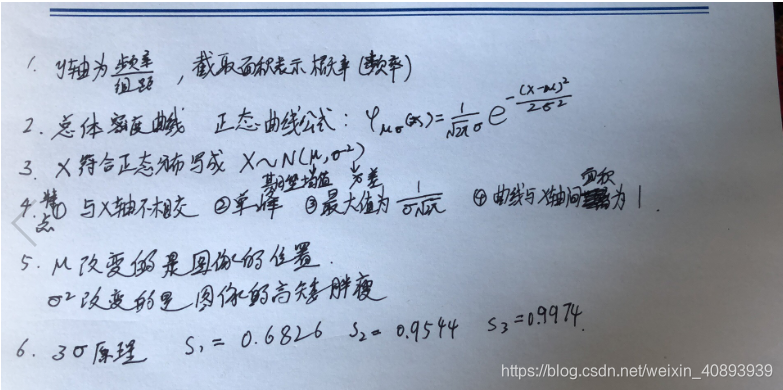 1. y轴为频率/组距，截取面积表示概率(频率)
2. 总体密度曲线 正态曲线公式：φμσ(x)=1/√2π σ e^-(x-μ)²/2σ²
3. X符合正态分布写成 X~N(μ,σ²)
期望 均值 方差
4. 特点 ① 与X轴不相交 ②单峰 ③最大值为 1/σ√2π ④曲线与X轴间面积为1.
5. μ改变的是图像的位置.
σ²改变的是图像的高矮胖瘦
6. 3σ原理 S₁=0.6826 S₂=0.9544 S₃=0.9974.
https://blog.csdn.net/weixin_40893939